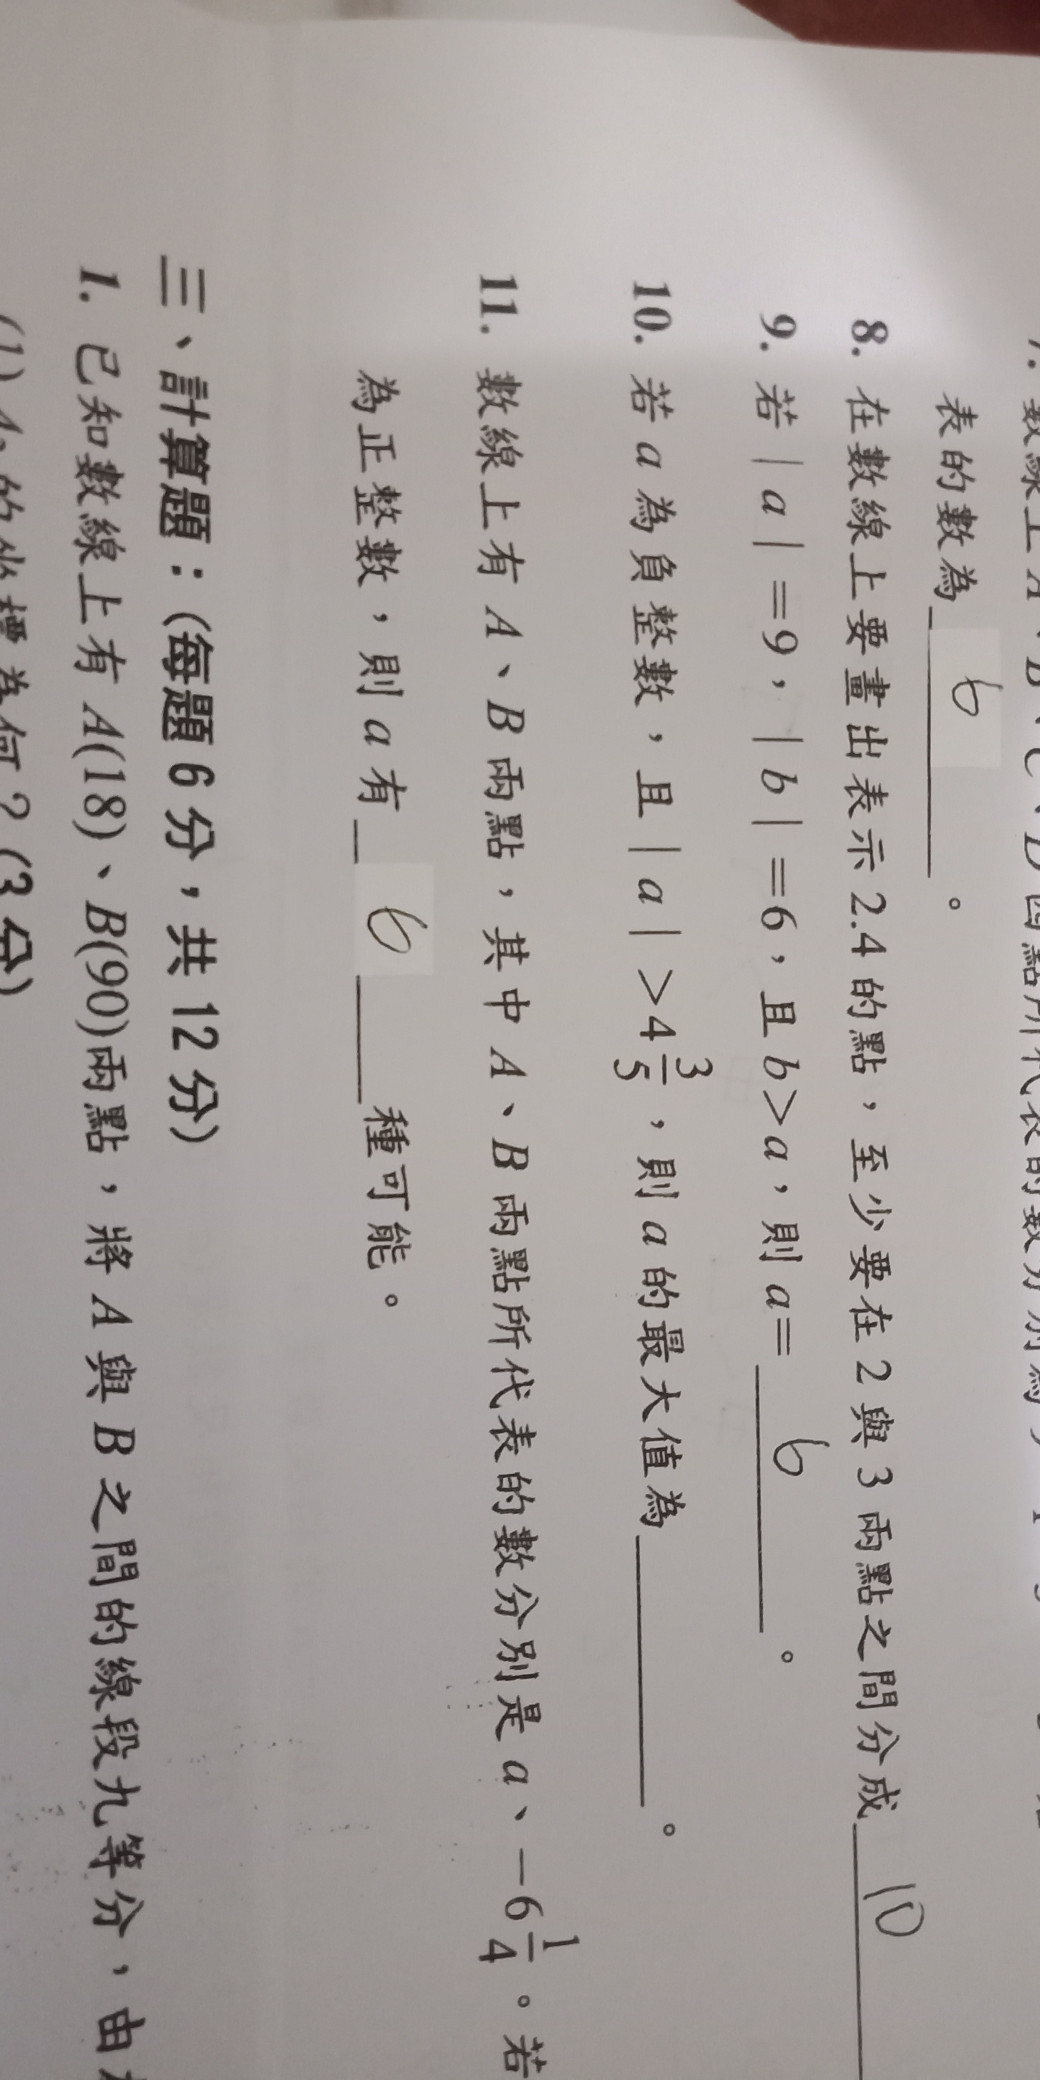 表的數為 6 。
8. 在數線上要畫出表示 2.4 的點，至少要在 2 與 3 兩點之間分成 10
9. 若｜a｜=9，｜b｜=6，且 b>a，則 a= 6 。
10. 若 a 為負整數，且｜a｜>4 3/5，則 a 的最大值為 。
11. 數線上有 A、B 兩點，其中 A、B 兩點所代表的數分別是 a、－6 1/4。若
為正整數，則 a 有 6 種可能。
三、計算題：(每題 6 分，共 12 分)
1. 已知數線上有 A(18)、B(90)兩點，將 A 與 B 之間的線段九等分，由
的坐標為何？(3 分)